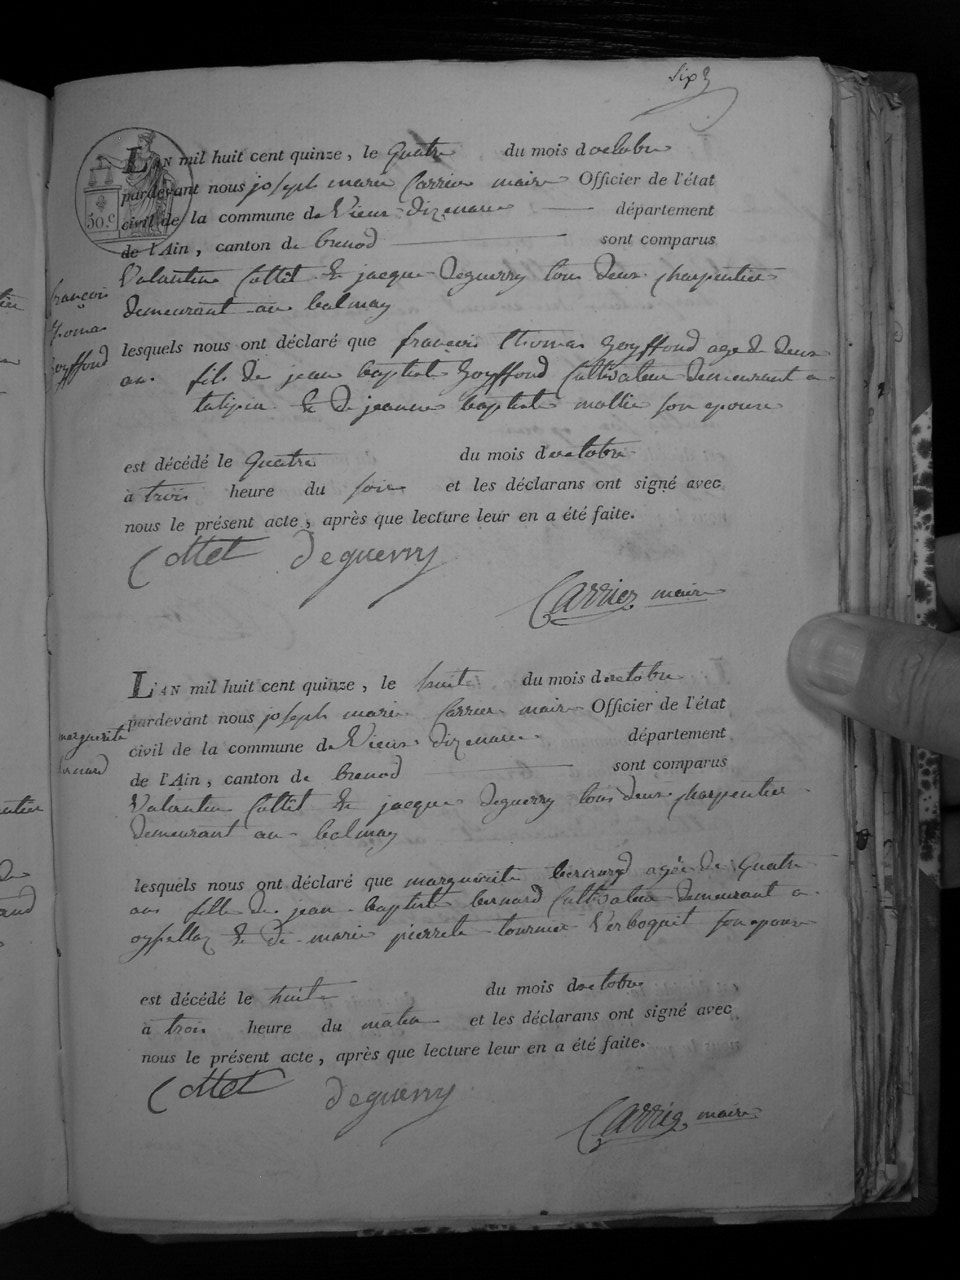 six
L'AN mil huit cent quinze, le quatre du mois doctobre
pardevant nous joseph marie Carrier maire Officier de l'état
50.c
civil de la commune de Vieux dizenave département
de l'Ain, canton de brenod sont comparus
Valantin Cottet & jacque deguerry tous deux charpentier
demeurant au balmay
françois
thomas
goyffond
lesquels nous ont déclaré que françois thomas goyffond age de deux
an fils de jean baptiste goyffond Cultivateur demeurant a
& de jeanne baptiste mollie son epouse
est décédé le quatre du mois doctobre
à trois heure du soir et les déclarans ont signé avec
nous le présent acte, après que lecture leur en a été faite.
Cottet deguerry
Carrier maire
L'AN mil huit cent quinze, le huite du mois doctobre
pardevant nous joseph marie Carrier maire Officier de l'état
marguerite
bernard
civil de la commune de Vieux dizenave département
de l'Ain, canton de brenod sont comparus
Valantin Cottet & jacque deguerry tous deux charpentier
demeurant au balmay
lesquels nous ont déclaré que marguerite bernard agée de quatre
ans fille de jean baptiste bernard Cultivateur demeurant a
oyssellaz & de marie pierrete tournier Verboquet son epouse
est décédé le huite du mois doctobre
à trois heure du matin et les déclarans ont signé avec
nous le présent acte, après que lecture leur en a été faite.
Cottet deguerry
Carrier maire